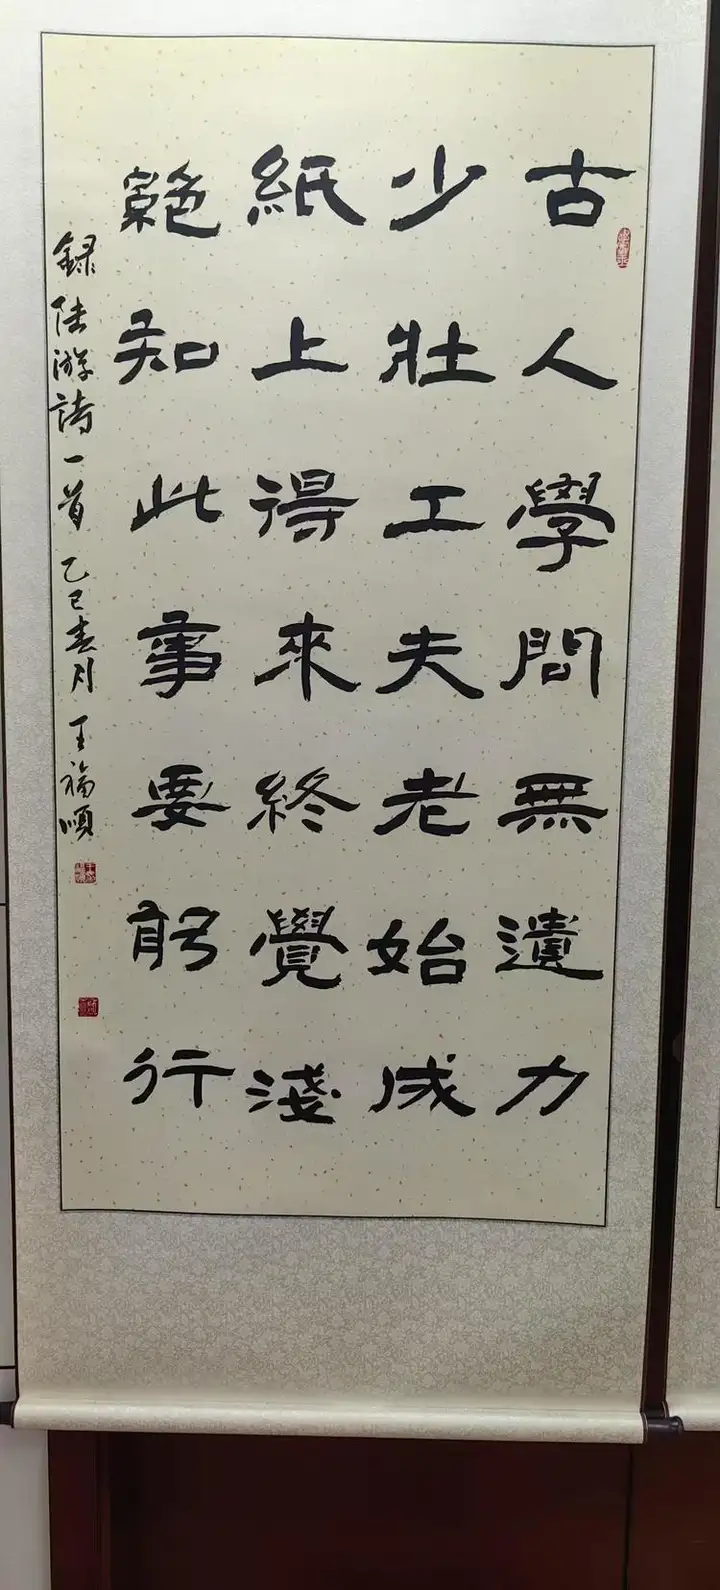 古人學問無遺力
少壯工夫老始成
紙上得來終覺淺
絶知此事要躬行
録陸游詩一首 乙巳春月 王福順